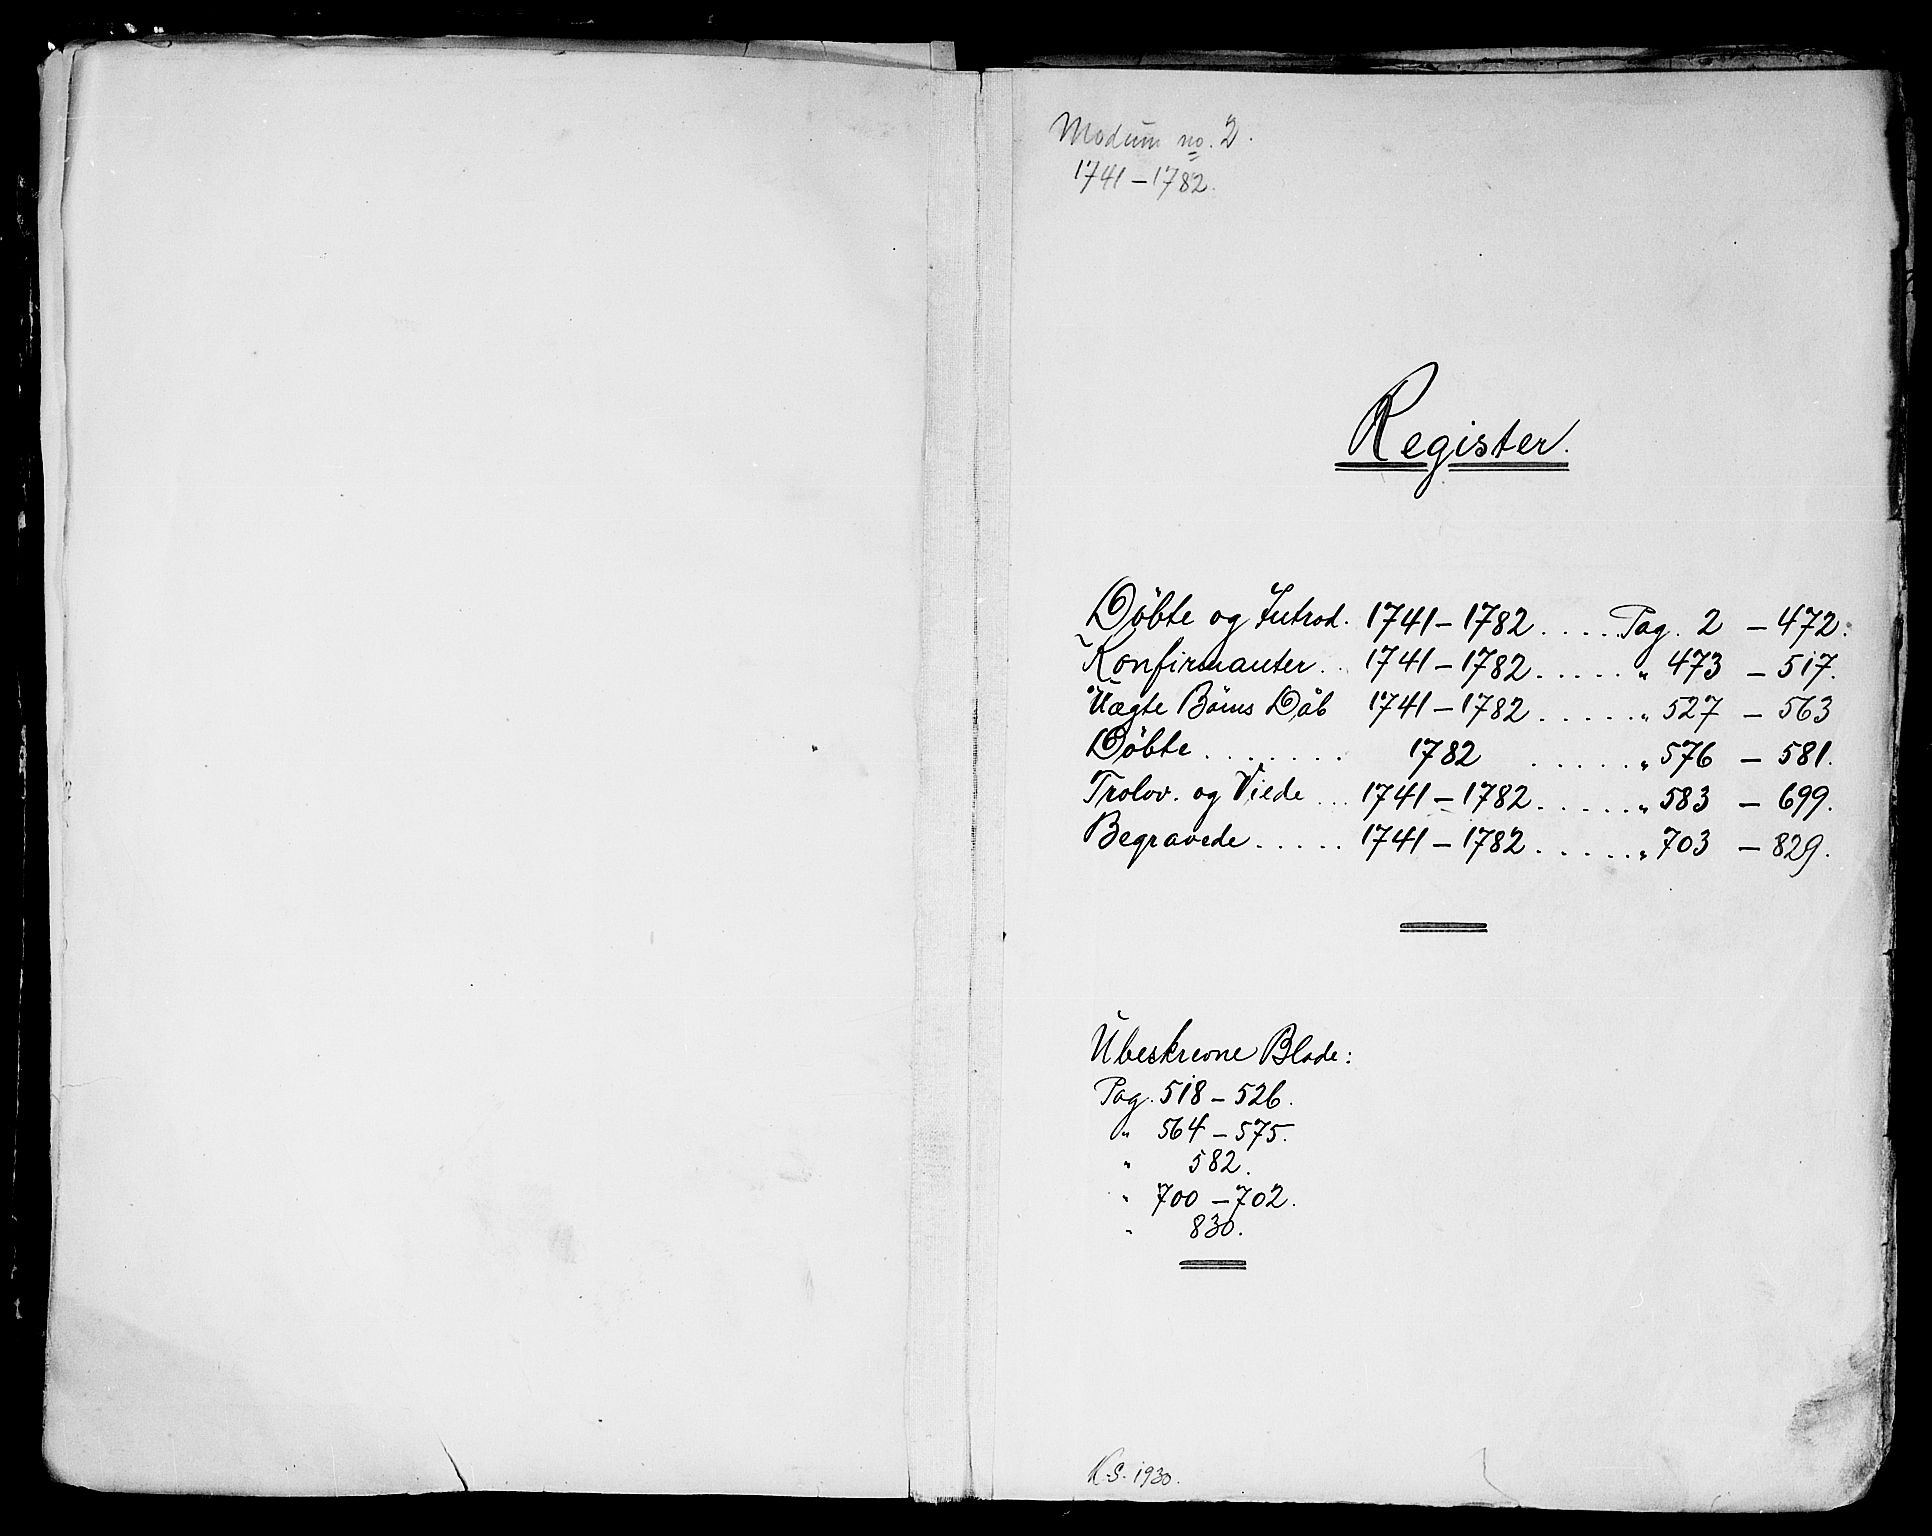 Modum no. 2.
1741 – 1782.
Register.
Döbte og Introd. 1741 – 1782 . . . . Pag. 2 – 472.
Konfirmanter . . 1741 – 1782 . . . . . " 473 – 517.
Uægte Börns Dåb 1741 – 1782 . . . . . " 527 – 563
Döbte . . . . . . . 1782 . . . . . " 576 – 581.
Trolov. og Viede . . . 1741 – 1782 . . . . . " 583 – 699.
Begravede . . . . . 1741 – 1782 . . . . . " 703 – 829.
Ubeskrevne Blade:
Pag. 518 – 526.
" 564 – 575.
" 582.
" 700 – 702.
" 830.
K.S. 1930.